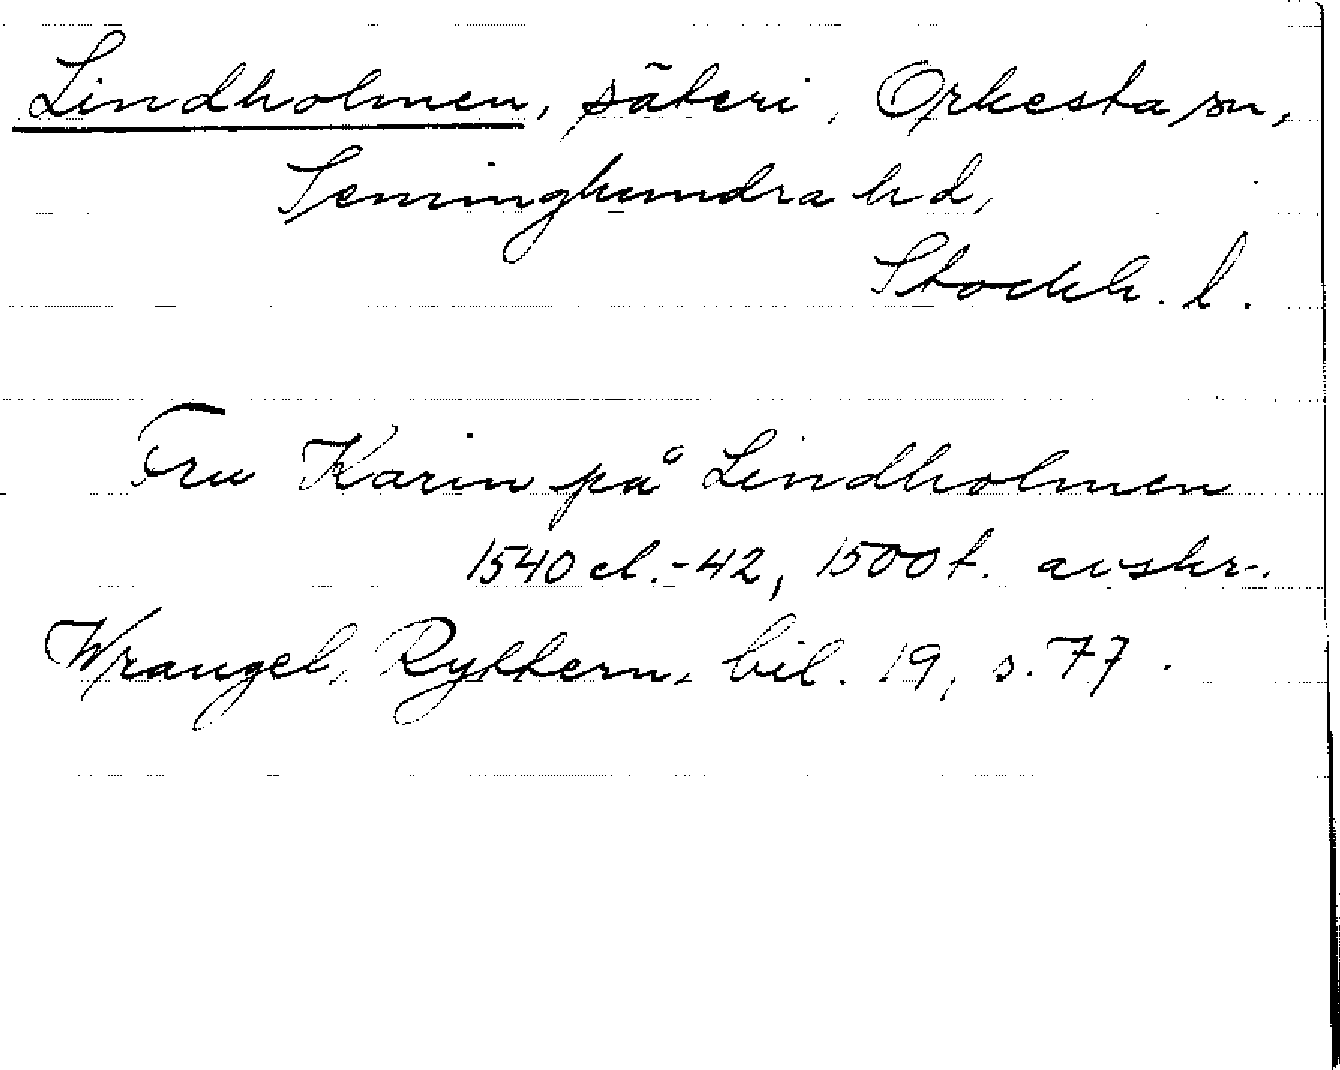 Lindholmen, säteri, Orkesta sn,
Seminghundra hd,
Stockh. l.
Fru Karin på Lindholmen
1540 el.-42, 1500t. avskr.
Wrangel, Ryttern, bil. 19, s. 77.